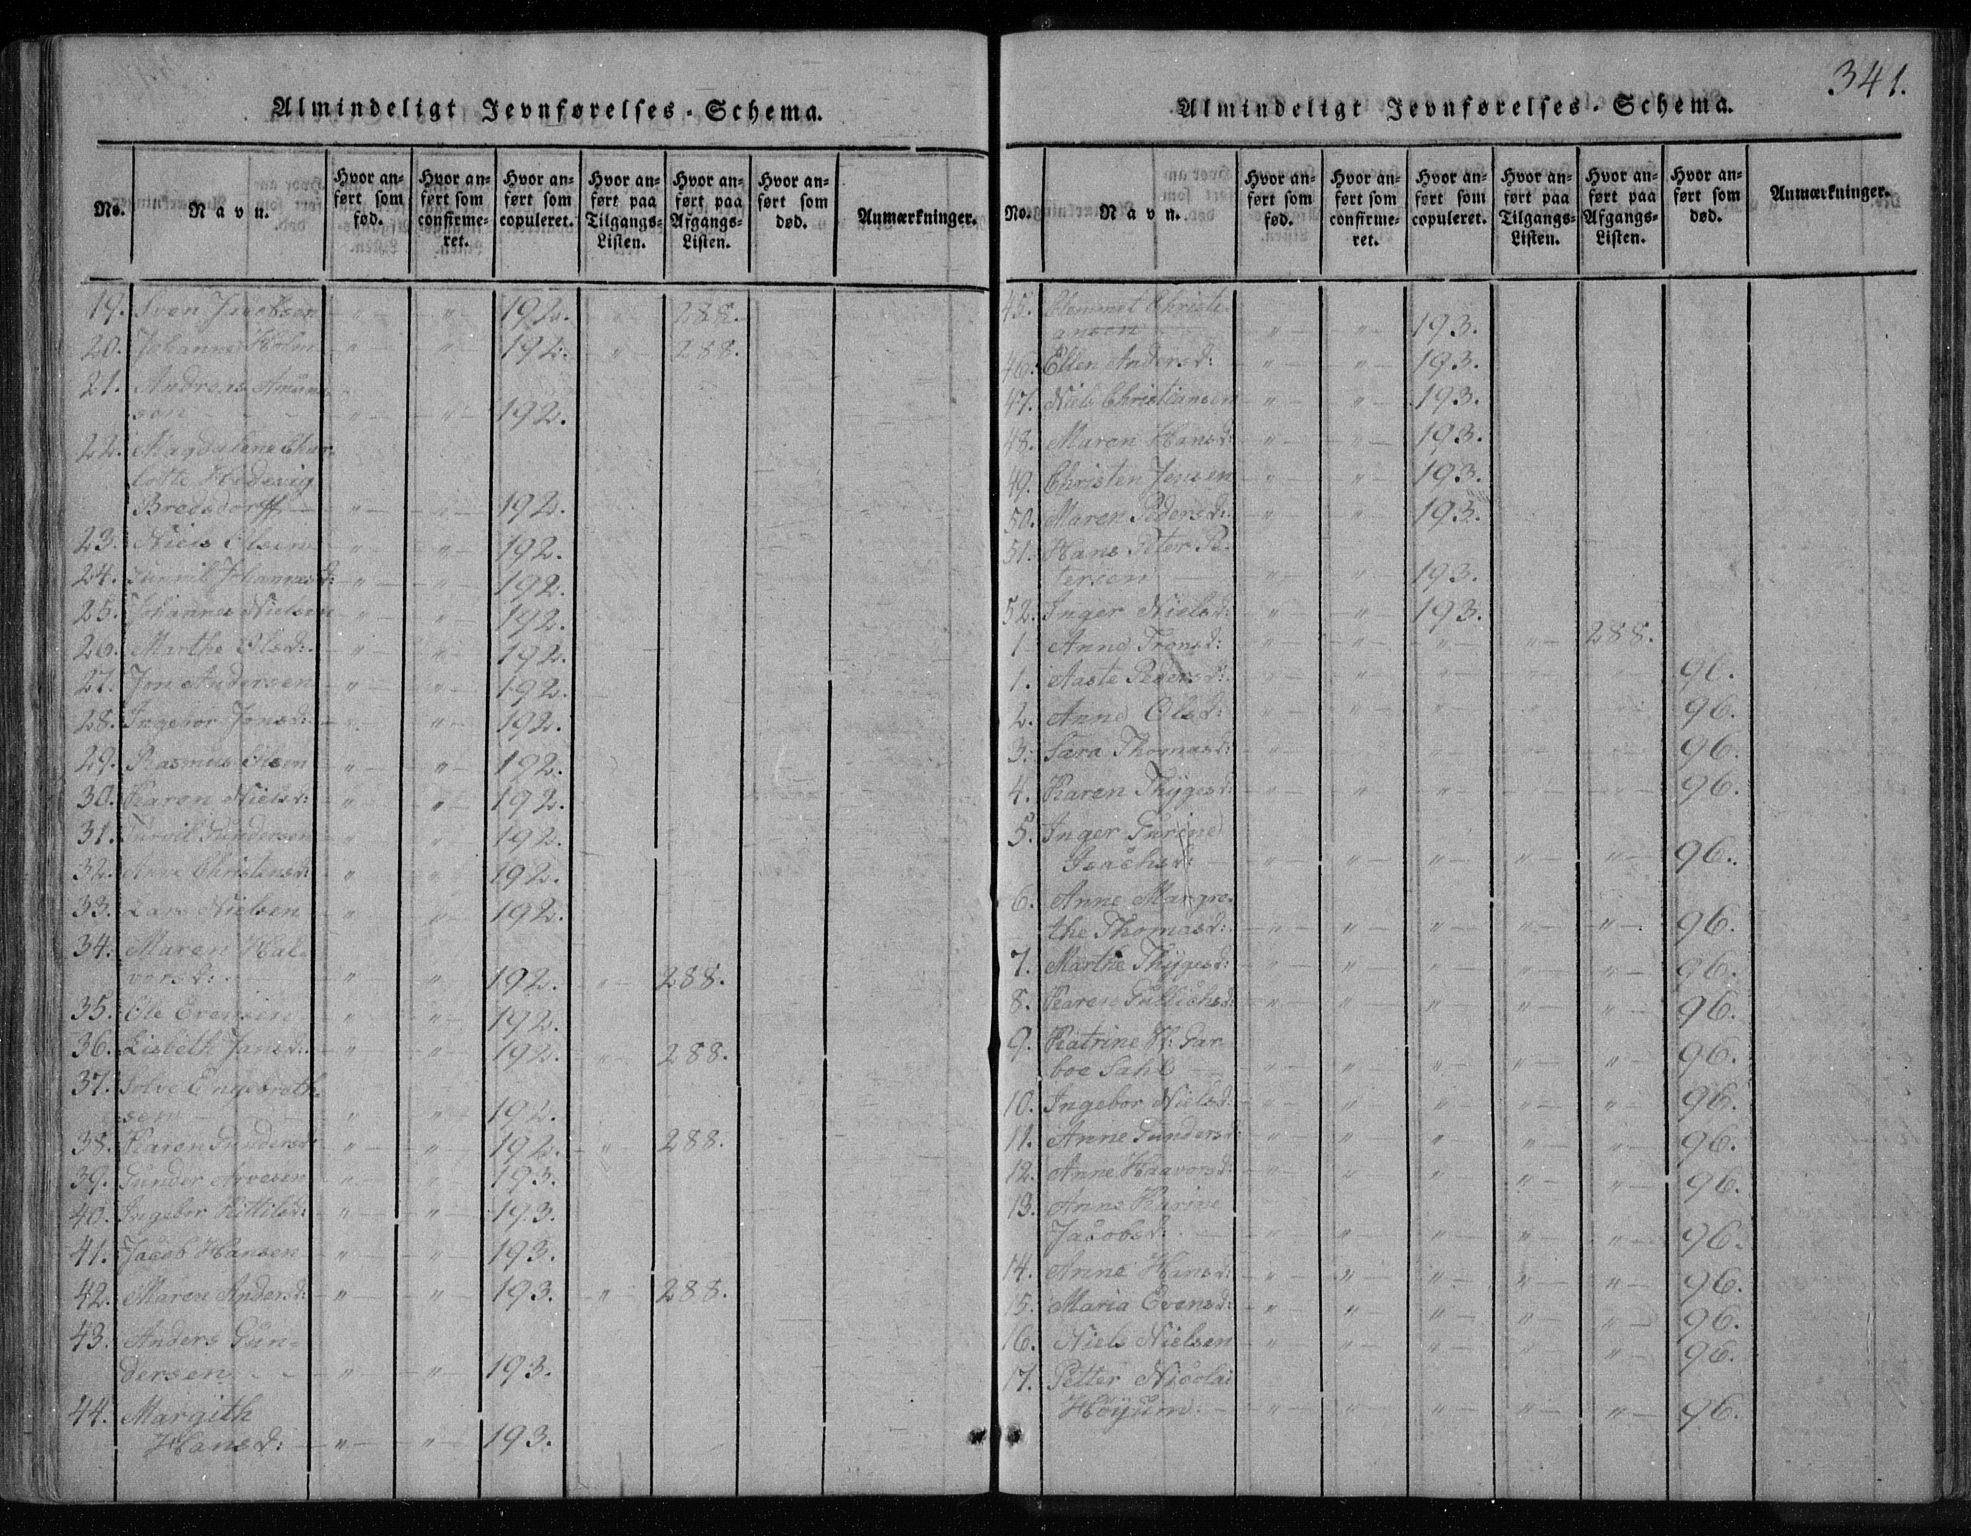 Almindeligt Jevnførelses-Schema.
No. Navn. Hvor anført som fød. Hvor anført som confirmeret. Hvor anført som copuleret. Hvor anført paa Tilgangs-Listen. Hvor anført paa Afgangs-Listen. Hvor anført som død. Anmærkninger.
19. Sven Jacobsen " " 192. " 288.
20. Johannes Holm " " 192. " 288.
21. Andreas Amun-
sen " " 192.
22. Magdalene Char-
lotte Hedevig
Bredsdorff " " 192.
23. Niels Olsen " " 192.
24. Gunnil Johannesd: " " 192.
25. Johannes Nielsen " " 192.
26. Marthe Olsd: " " 192.
27. Jon Andersen " " 192.
28. Ingebor Jensd: " " 192.
29. Rasmus Olsen " " 192.
30. Karen Nielsd: " " 192.
31. Gundersen " " 192.
32. Anne Christensd: " " 192.
33. Lars Nielsen " " 192.
34. Maren Hal-
vorsd: " " 192. " 288.
35. Ole Evensen " " 192.
36. Lisbeth Jansd: " " 192. " 288.
37. Solve Engebreth-
sen " " 192.
38. Karen Gundersd: " " 192. " 288.
39. Gunder Arvesen " " 193.
40. Ingebor Kittilsd: " " 193.
41. Jacob Hansen " " 193.
42. Maren Andersd: " " 193. " 288.
43. Anders Gun-
dersen " " 193.
44. Margith
Hansd: " " 193.
341.
Almindeligt Jevnførelses-Schema.
No. Navn. Hvor anført som fød. Hvor anført som confirmeret. Hvor anført som copuleret. Hvor anført paa Tilgangs-Listen. Hvor anført paa Afgangs-Listen. Hvor anført som død. Anmærkninger.
45. Clemmet Christi-
ansen " " 193.
46. Ellen Andersd: " " 193.
47. Niels Christiansen " " 193.
48. Maren Hansd: " " 193.
49. Christen Jensen " " 193.
50. Maren Pedersd: " " 193.
51. Hans Peter Pe-
tersen " " 193.
52. Inger Nielsd: " " 193.
1 Anne Tronsd: " " " " 288.
1. Aaste Pedersd: " " " " " 96.
2. Anne Olsd: " " " " " 96.
3. Sara Thomasd: " " " " " 96.
4. Karen Thygesd: " " " " " 96.
5. Inger Gurine
Isachsd: " " " " " 96.
6. Anne Margre-
the Thomasd: " " " " " 96.
7. Marthe Thygesd: " " " " " 96.
8. Karen Gullichsd: " " " " " 96.
9. Katrine K: Gar-
boe Dahl " " " " " 96.
10. Ingebor Nielsd: " " " " " 96.
11. Anne Gundersd: " " " " " 96.
12. Anne Haavorsd: " " " " " 96.
13. Anne Karine
Jacobsd: " " " " " 96.
14. Anne Hansd: " " " " " 96.
15. Maria Evensd: " " " " " 96.
16. Niels Nielsen " " " " " 96.
17. Petter Nicolai
Høyum " " " " " 96.